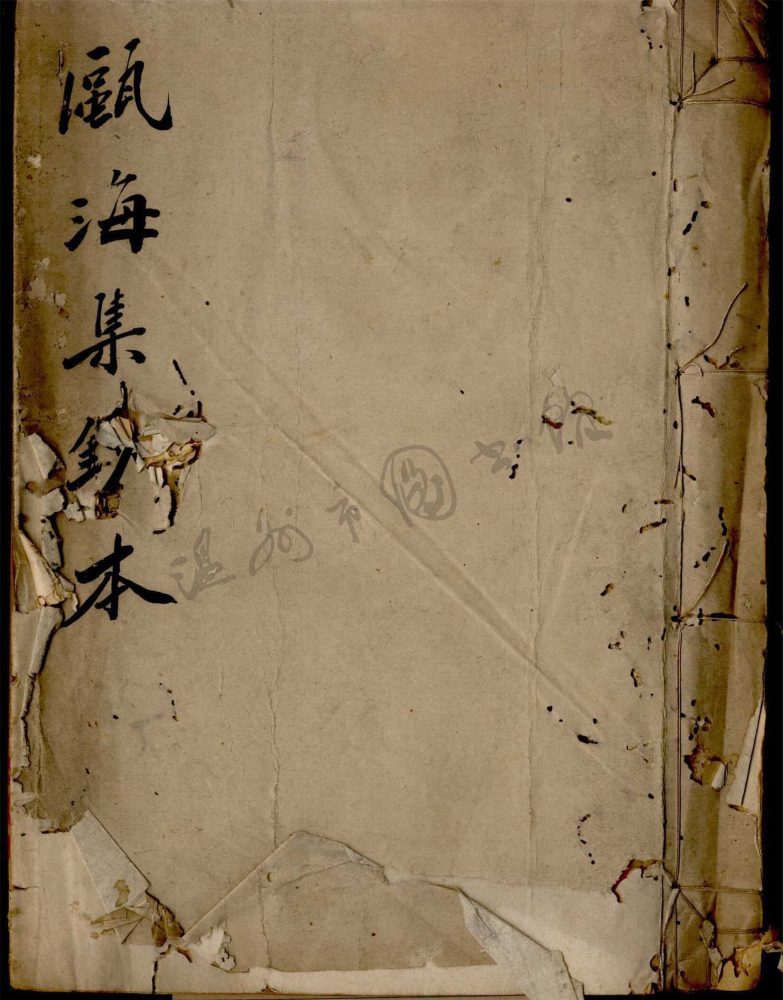 甌海集鈔本
温州市圖书館